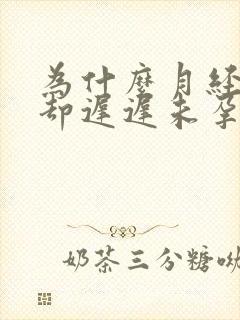 為什麼月經
却遲遲未孕
奶茶三分糖呦